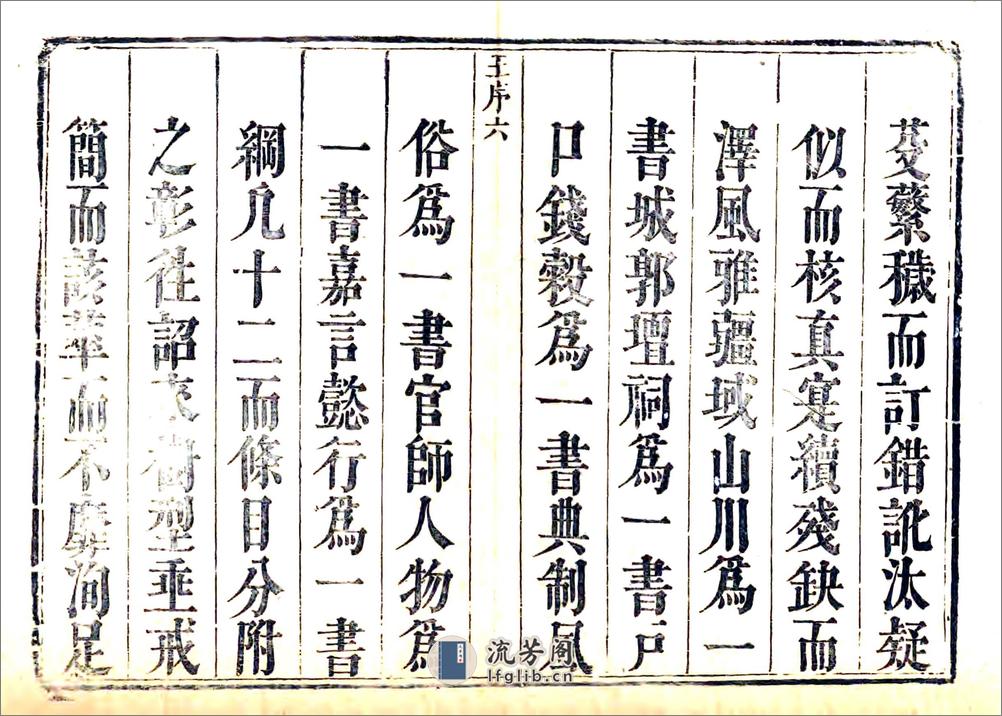 芟蘩穢而訂錯訛汰疑
似而核真寔續殘缺而
澤風雅疆域山川爲一
書城郭壇祠爲一書戶
口錢穀爲一書典制風
王序六
俗爲一書官師人物爲
一書嘉言懿行爲一書
綱凢十二而條目分附
之彰徃詔來樹型垂戒
簡而該華而不靡洵足
流芳阁
lfglib.cn